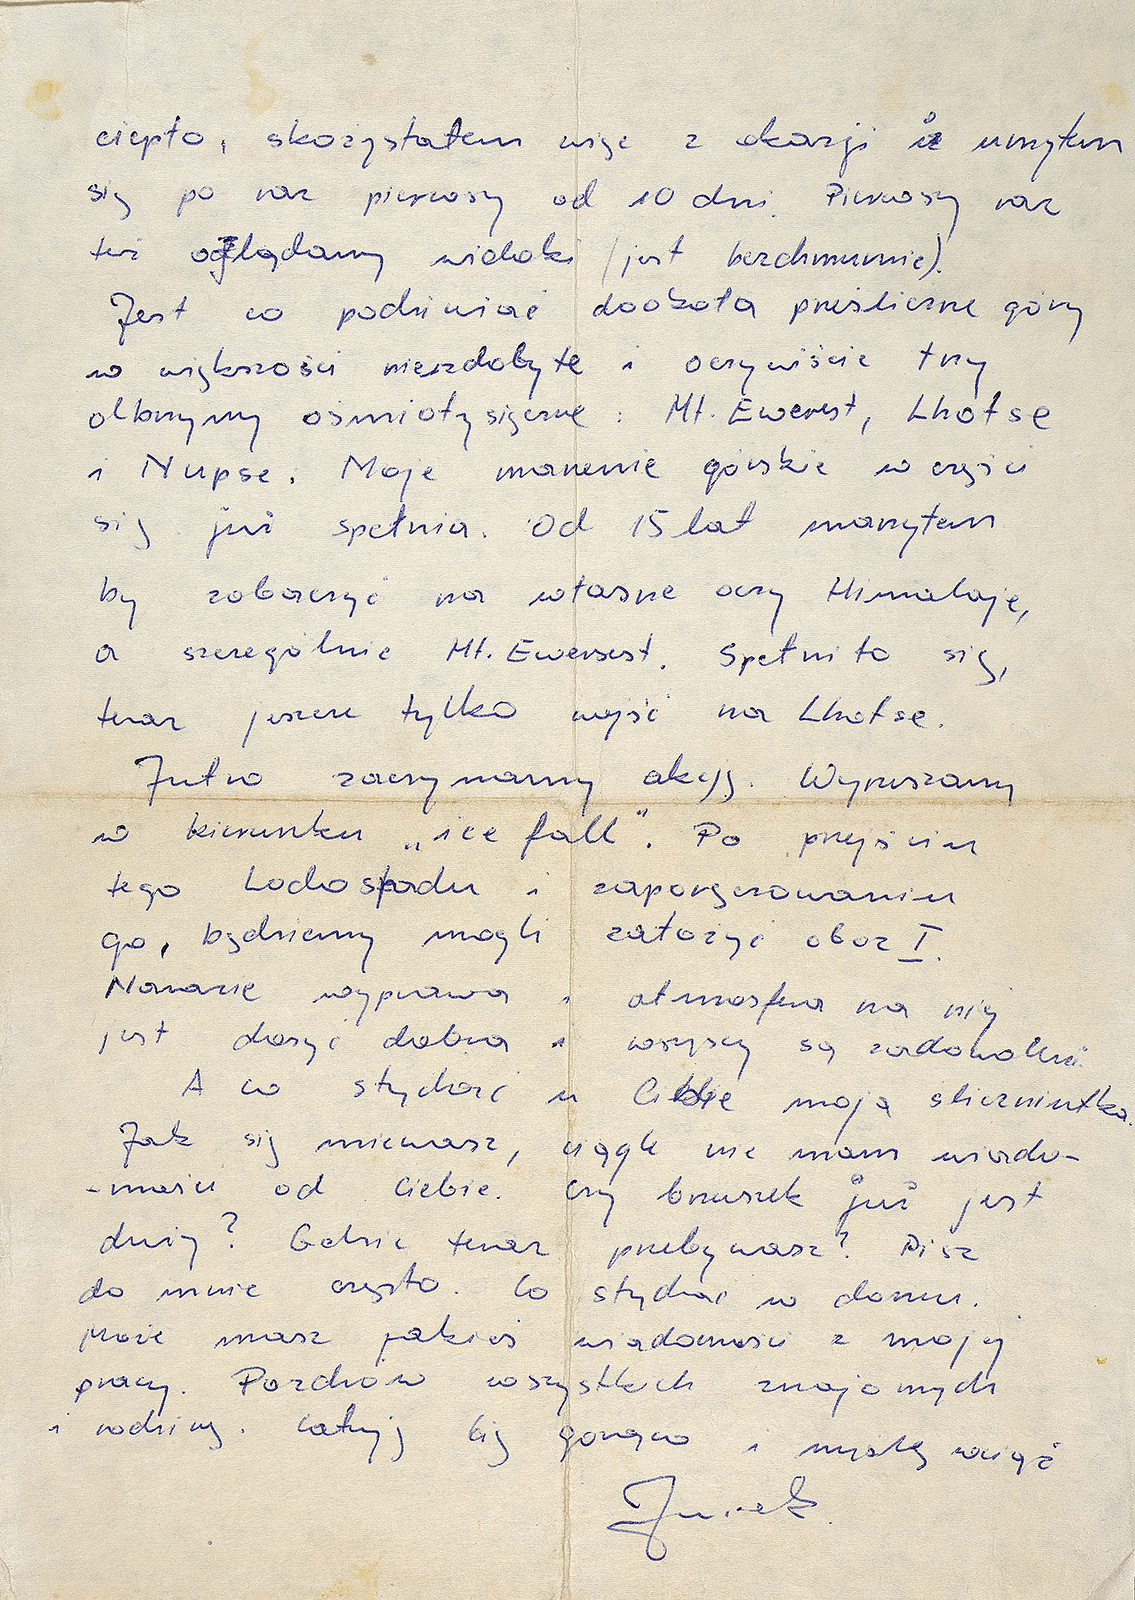 ciepło, skorzystałem więc z okazji i umyłem
się po raz pierwszy od 10 dni. Pierwszy raz
też oglądamy widoki (jest bezchmurnie).
Jest co podziwiać dookoła prześliczne góry
w większości niezdobyte i oczywiście trzy
olbrzymy ośmiotysięczne: Mt. Ewerest, Lhotse
i Nupse. Moje marzenie górskie w części
się już spełnia. Od 15 lat marzyłem
by zobaczyć na własne oczy Himalaje,
a szczególnie Mt. Ewerest. Spełniło się,
teraz jeszcze tylko wejść na Lhotse.
Jutro zaczynamy akcję. Wyruszamy
w kierunku „ice fall". Po przejściu
tego Lodospadu i zaporęczowaniu
go, będziemy mogli założyć obóz I.
Narazie wyprawa i atmosfera na niej
jest dosyć dobra i wszyscy są zadowoleni.
A co słychać u Ciebie moja śliczniutka.
Jak się miewasz, ciągle nie mam wiado-
-mości od Ciebie. Czy brzuszek już jest
duży? Gdzie teraz przebywasz? Pisz
do mnie często. Co słychać w domu.
Może masz jakieś wiadomości z mojej
pracy. Pozdrów wszystkich znajomych
i rodzinę. Całuję Cię gorąco i myślę wciąż
Jurek.